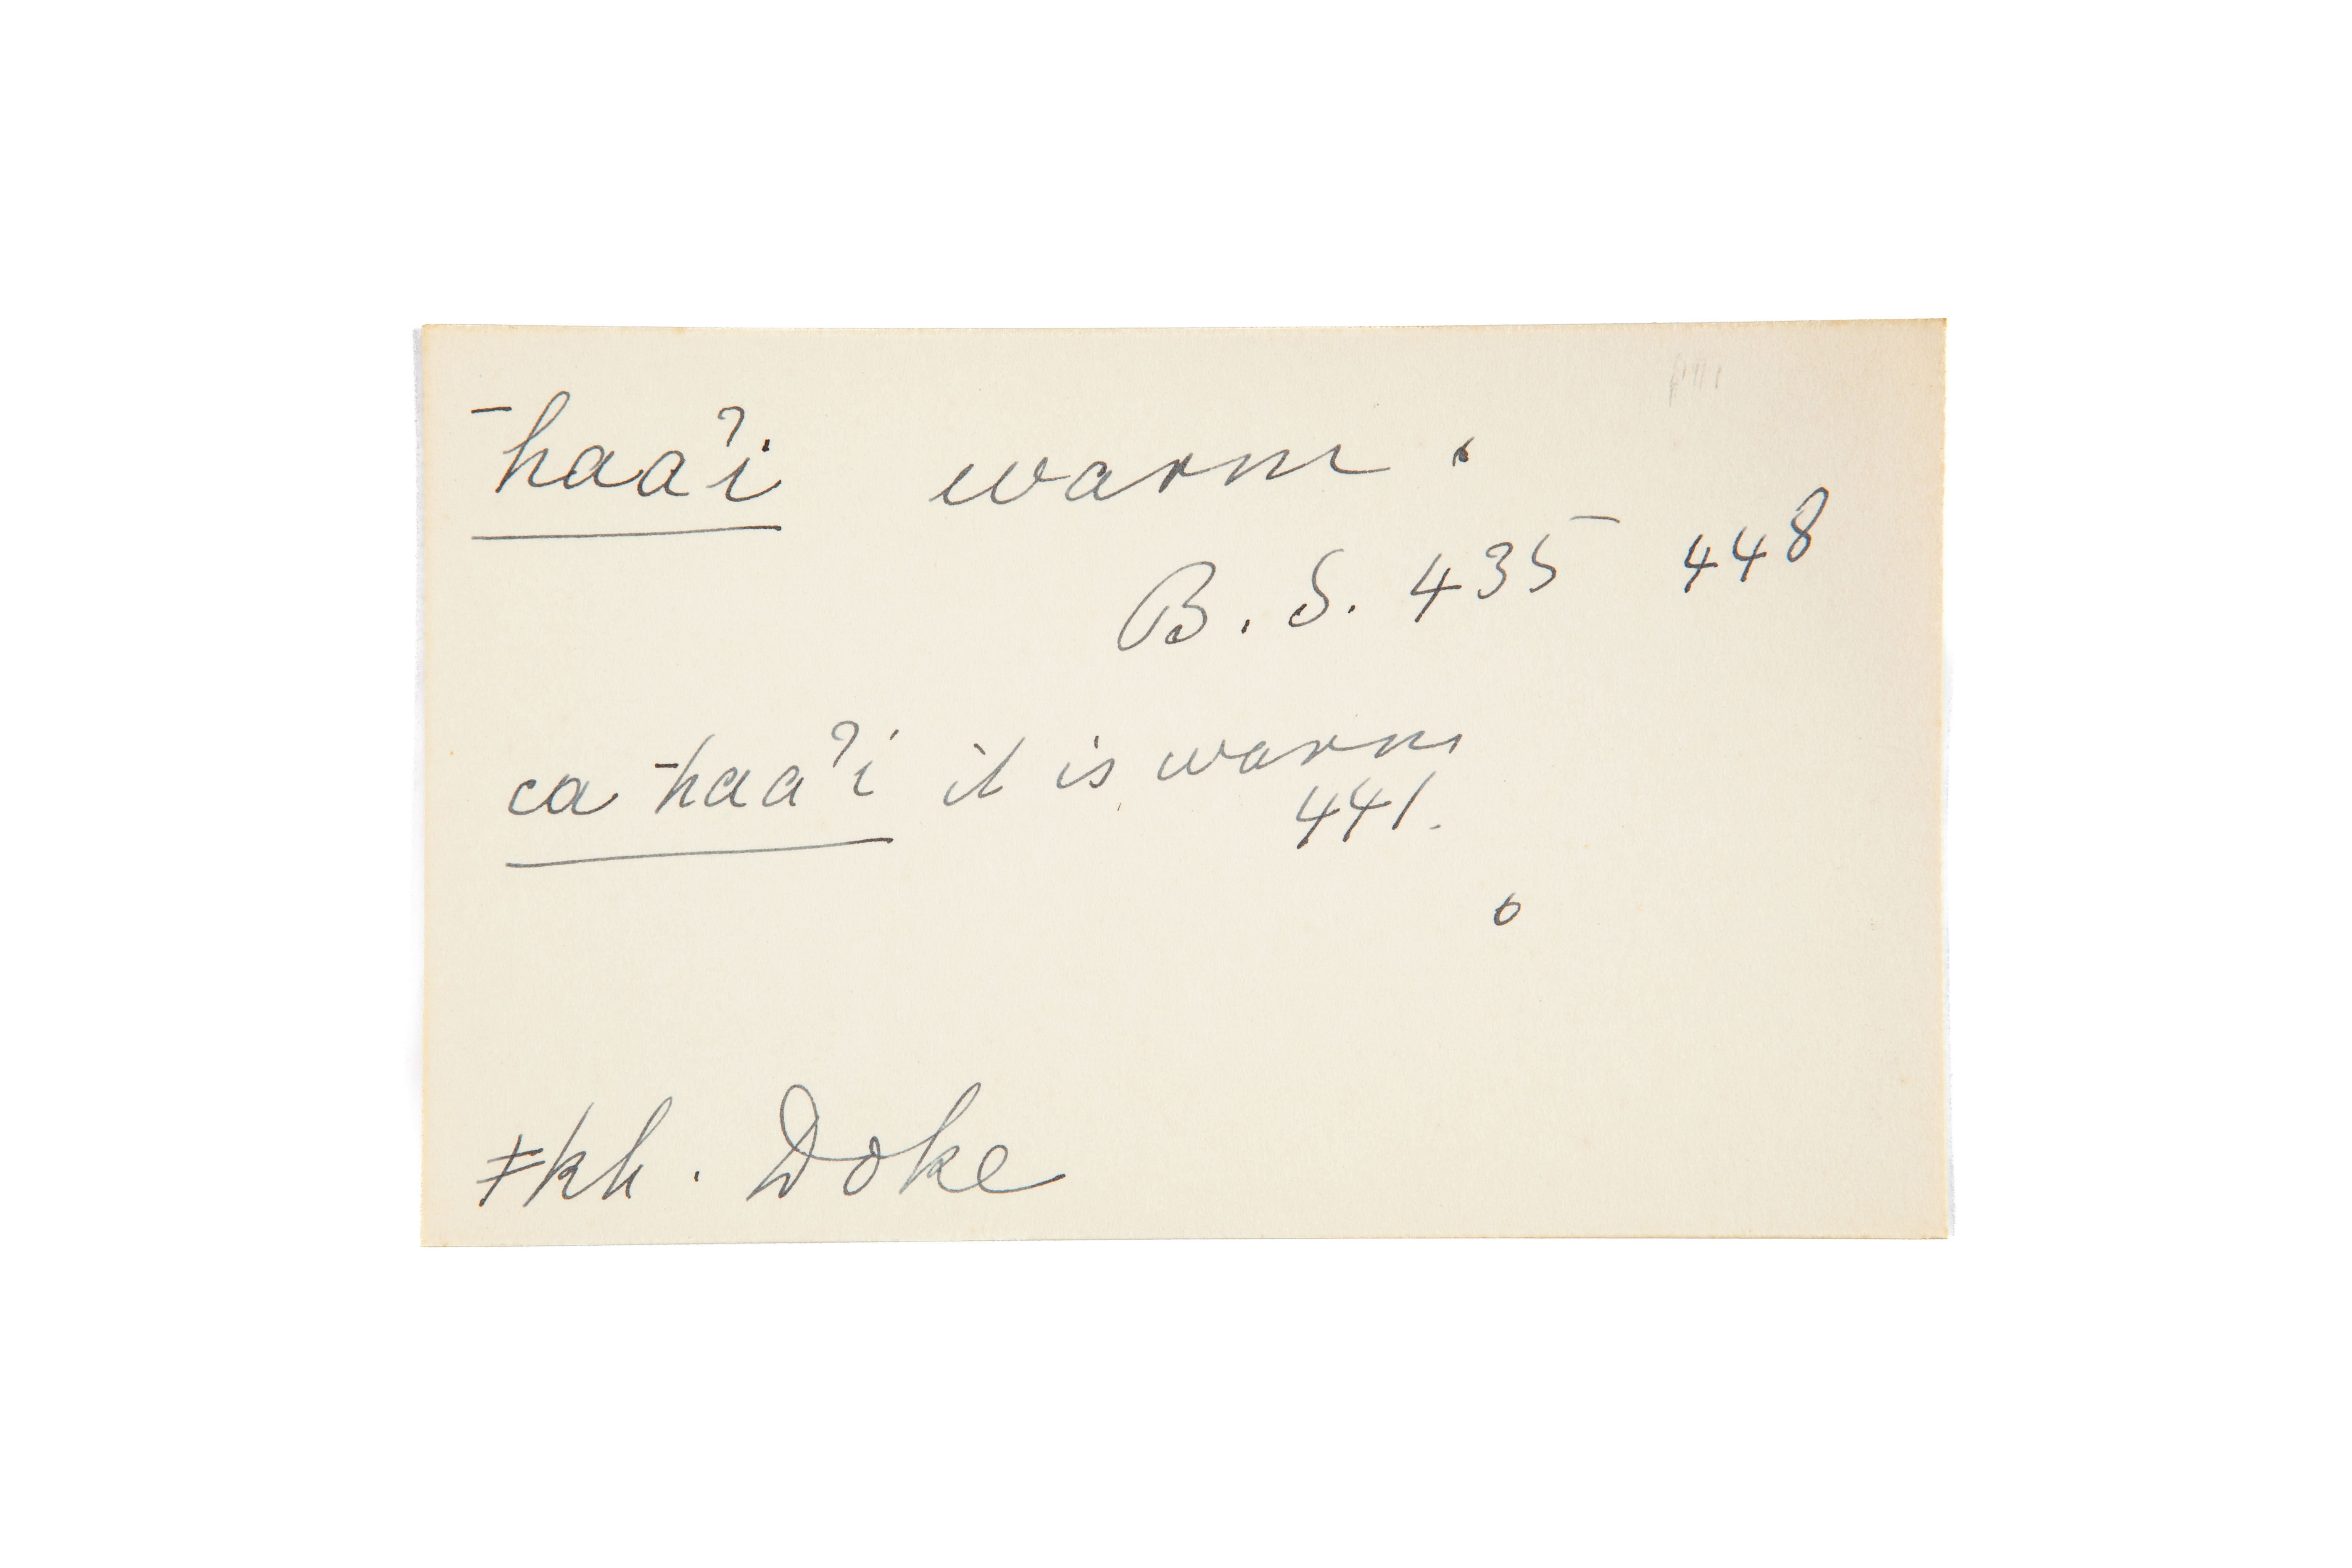 ¯haaˀi warm.
B. S. 435 448
ca ¯haaˀi it is warm
441.
ǂkh. Doke